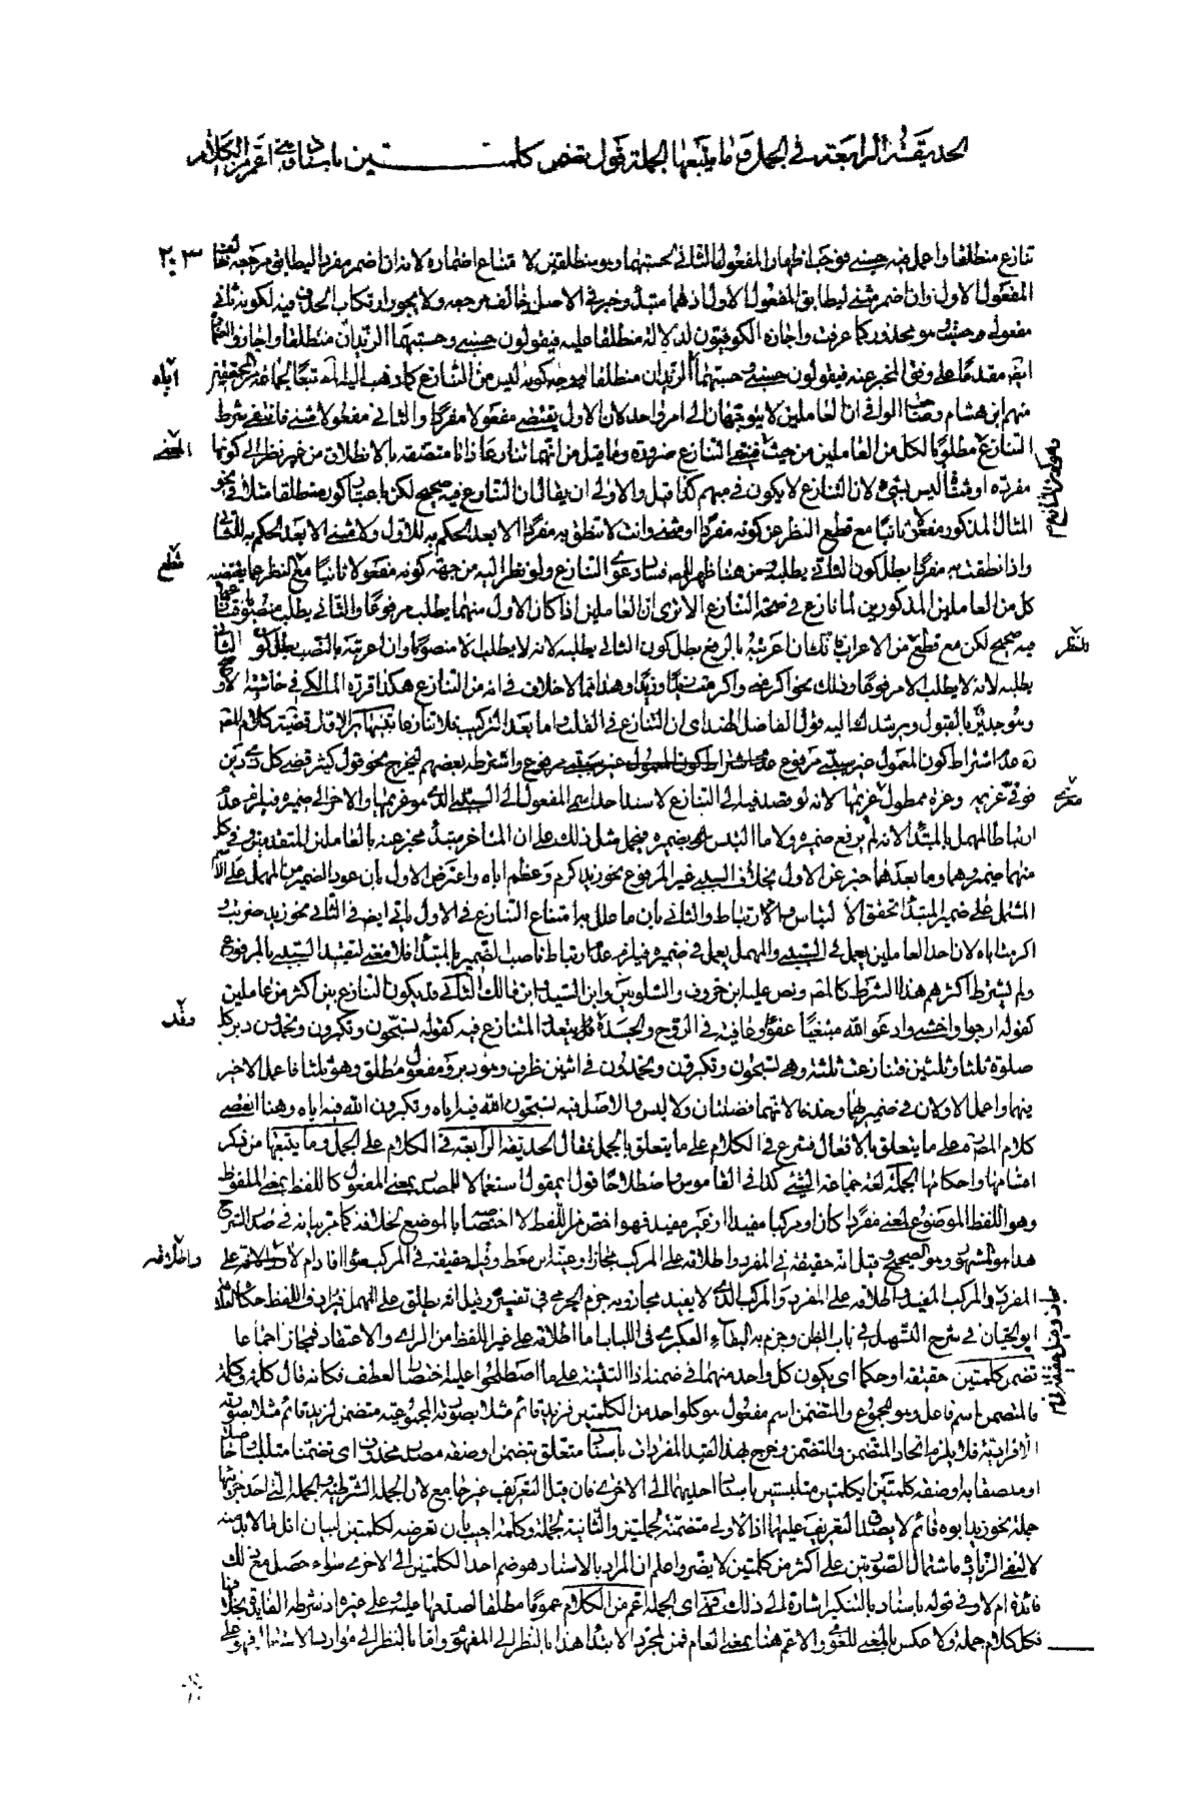 الحديقة الرابعة في الجمل وما يتبعها الجملة قول تضمن كلمتين باسناد فهي اعم من الكلام
٢٠٣
تنازع منطلقا واعمل فيه حسبني فوجب اظهار المفعول الثاني لحسبتهما وهو منطلقين لامتناع اضماره لانه ان اضمر مفردا ليطابق مرجعه خالف
المفعول الاول وان اضمر مثنى ليطابق المفعول الاول اذ هما مبتدا وخبر في الاصل خالف مرجعه ولا يجوز ارتكاب الحذف فيه لكونه ثاني
مفعولي حسبت وهو محذور كما عرفت واجازه الكوفيون لدلالة منطلقا عليه فيقولون حسبني وحسبتهما الزيدان منطلقا واجازوا
مقدما على وفق المخبر عنه فيقولون حسبني وحسبتهما اياه الزيدان منطلقا ووجه كونه ليس من التنازع كما ذهب اليه تبعا لجماعة من المحققين
اياه
منهم ابن هشام وصاحب الوافي ان العاملين لا يتوجهان الى امر واحد لان الاول يقتضي مفعولا مفردا والثاني مفعولا مثنى فانتفى شرط
التنازع مطلوبا لكل من العاملين من حيث المعنى التنازع ضرورة وما قيل من انهما تنازعا ذاتا متصفة بالانطلاق من غير نظر الى كونها
المعنى
مفردة او مثناة ليس بشئ لان التنازع لا يكون في مبهم كذا قيل والاولى ان يقال ان التنازع فيه صحيح لكن باعتبار كون منطلقا مثلا في نحو
المثال المذكور مفعولا ثانيا مع قطع النظر عن كونه مفردا او مثنى وانت لا تنطق به مفردا الا بعد الحكم به للاول ولا مثنى الا بعد الحكم به للثاني
واذا نطقت به مفردا بطل كون الثاني يطلبه ومن هنا ظهر لهم فساد دعوى التنازع ولو نظر اليه من جهة كونه مفعولا ثانيا مع قطع النظر عما يقتضيه
قطع
كل من العاملين المذكورين لما نازع في صحة التنازع الا ترى ان العاملين اذا كان الاول منهما يطلب مرفوعا والثاني يطلب منصوبا
فيه صحيح لكن مع قطع النظر عن الاعراب فانك ان اعربته بالرفع بطل كون الثاني يطلبه لانه لا يطلب الا منصوبا وان اعربته بالنصب بطل كون
للنظر
يطلبه لانه لا يطلب الا مرفوعا وذلك نحو اكرمني واكرمت زيدا وهذا مما لا خلاف في انه من التنازع هكذا قرره المالكي في حاشيته
وهو جدير بالقبول ويرشدك اليه قول الفاضل الهندي ان التنازع في القلب اما بعد التركيب فلا تنازع
عدم اشتراط كون المعمول غير سببي مرفوع واشترطه بعضهم ليخرج نحو قول كثير قضى كل ذي دين
فوفى غريمه وعزة ممطول معنى غريمها لانه لو قصد فيه التنازع لاسند احدهما الى السببي الذي هو غريمها والاخر الى ضميره فيلزم عدم
معنى
ارتباط المهمل بالمبتدا لانه لم يرفع ضميره ولا ما التبس بضميره فيحمل مثل ذلك على ان المتاخر مبتدا مخبر عنه بالعاملين المتقدمين وفي كل
منهما ضميره وهما وما بعدهما خبر عن الاول بخلاف السببي غير المرفوع نحو زيد اكرم وعظم اباه واعترض الاول بان عود الضمير من المهمل على الاسم
المشتمل على ضمير المبتدا تحقق الالتباس والارتباط والثاني بان ما علل به امتناع التنازع في الاول ياتي ايضا في الثاني نحو زيد ضربت و
اكرمت اباه لان احد العاملين يعمل في السببي والمهمل يعمل في ضميره فيلزم عدم ارتباط ناصب الضمير بالمبتدا فلا معنى لتقييد السببي بالمرفوع
ولم يشترط اكثرهم هذا الشرط كالمصنف ونص عليه ابن خروف والشلوبين وابن السيد وابن مالك الثاني قد يكون التنازع بين اكثر من عاملين
كقوله ارجو واخشى وادعو الله مبتغيا عفوا وعافية في الروح والجسد وقد يتعدد المتنازع فيه كقوله تسبحون وتكبرون وتحمدون دبر كل
وقد
صلوة ثلثا وثلثين فتنازعت ثلثة وهي تسبحون وتكبرون وتحمدون في اثنين ظرف وهو دبر ومفعول مطلق وهو ثلثا فاعمل الاخير
فيهما واعمل الاولان في ضميريهما وحذفا لانهما فضلتان ولا لبس والاصل فيه تسبحون الله فيه اياه وتكبرون الله فيه اياه وهنا انقضى
كلام المصنف على ما يتعلق بالافعال فشرع في الكلام على ما يتعلق بالجمل فقال الحديقة الرابعة في الكلام على الجمل وما يتبعها من ذكر
اقسامها واحكامها الجملة لغة جماعة الشئ كذا في القاموس واصطلاحا قول اي مقول استعمالا للمصدر بمعنى المفعول كاللفظ بمعنى الملفوظ
وهو اللفظ الموضوع لمعنى مفردا كان او مركبا مفيدا او غير مفيد فهو اخص من اللفظ لاختصاصه بالموضوع بخلافه كما مر بيانه في صدر الشرح
هذا هو المشهور وهو الصحيح وقيل انه حقيقة في المفرد واطلاقه على المركب مجاز وقيل حقيقة في المركب سواء افاد ام لا واطلاقه على
واطلاقه
المفرد والمركب المفيد واطلاقه على المفرد والمركب الذي لا يفيد مجاز وبه جزم الجرمي في تفسيره وقيل انه يطلق على المهمل فيرادف اللفظ حكاه
ابو حيان في شرح التسهيل في باب الظن وجزم به ابو البقاء العكبري في اللباب اما اطلاقه على غير اللفظ من الراي والاعتقاد فمجاز اجماعا
تضمن كلمتين حقيقة او حكما اي يكون كل واحد منهما في ضمنه اذ التثنية على ما اصطلحوا عليه اختصار العطف فكانه قال كلمة وكلمة
فالمتضمن اسم فاعل وهو المجموع والمتضمن اسم مفعول هو كل واحد من الكلمتين فزيد قائم مثلا بصورته المجموعية متضمن لزيد قائم مثلا بصورته
الافرادية فلا يلزم اتحاد المتضمن والمتضمن وخرج بهذا القيد المفردات باسناد متعلق بتضمن او صفة مصدر محذوف اي تضمنا متلبسا
او متصفا به او صفة كلمتين اي كلمتين متلبستين باسناد احديهما الى الاخرى فان قيل التعريف غير جامع لان الجملة الشرطية والجملة التي احد جزئيها
جملة نحو زيد ابوه قائم لا يصدق التعريف عليهما اذ الاولى متضمنة لجملتين والثانية لجملة وكلمة اجيب بان تعرضه لكلمتين لبيان اقل ما لا بد منه
لا لنفي الزيادة فاشتمال الصورتين على اكثر من كلمتين لا يضر واعلم ان المراد بالاسناد هو ضم احدى الكلمتين الى الاخرى سواء حصل مع ذلك
فائدة ام لا وفي قوله باسناد بالتنكير اشارة الى ذلك فهي اي الجملة اعم من الكلام عموما مطلقا لصدقها عليه وعلى غيره اذ شرطه الفائدة بخلافها
فكل كلام جملة ولا عكس بالمعنى اللغوي والاعم هنا بمعنى العام فمن لمجرد الابتداء هذا بالنظر الى المفهوم واما بالنظر الى موارد الاستعمال فهو على